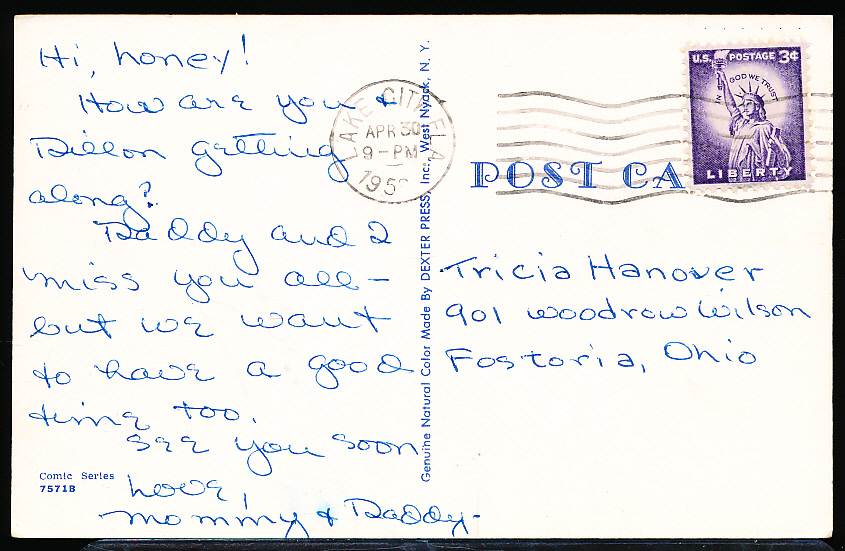 Hi, honey!
How are you &
Dillon getting
along?
Daddy and I
miss you all –
but we want
to have a good
time too.
See you soon
Love,
Mommy & Daddy-
Comic Series
7571B
Genuine Natural Color Made By DEXTER PRESS, Inc., West Nyack, N. Y.
LAKE CITY FLA
APR 30
9-PM
195
U.S. POSTAGE 3¢
IN GOD WE TRUST
LIBERTY
POST CA
Tricia Hanover
901 Woodrow Wilson
Fostoria, Ohio